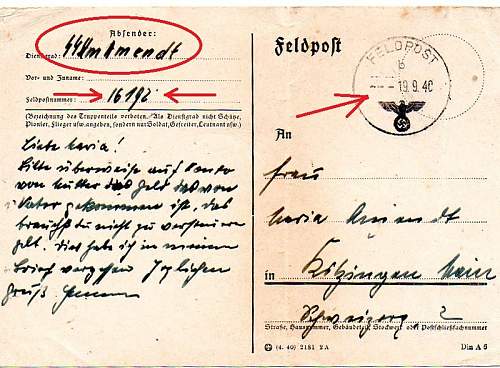 Absender:
Dienstgrad:
Vor- und Zuname:
Feldpostnummer: 16192
(Bezeichnung des Truppenteils verboten. / Als Dienstgrad nicht Schütze,
Pionier, Flieger usw. angeben, sondern nur: Soldat, Gefreiter, Leutnant usw.)
Liebe Maria!
Bitte überweise auf Konto
von Mutter das Geld das von
Vater gekommen ist, das
brauchst du nicht zu
hab ich in meinem
Brief vergessen
Gruß
Feldpost
FELDPOST
b
19.9.40
An
Frau
Maria
in Kitzingen Main
Straße, Hausnummer, Gebäudeteil, Stockwerk oder Postschließfachnummer
(4. 40) 2181 2A
Din A 6